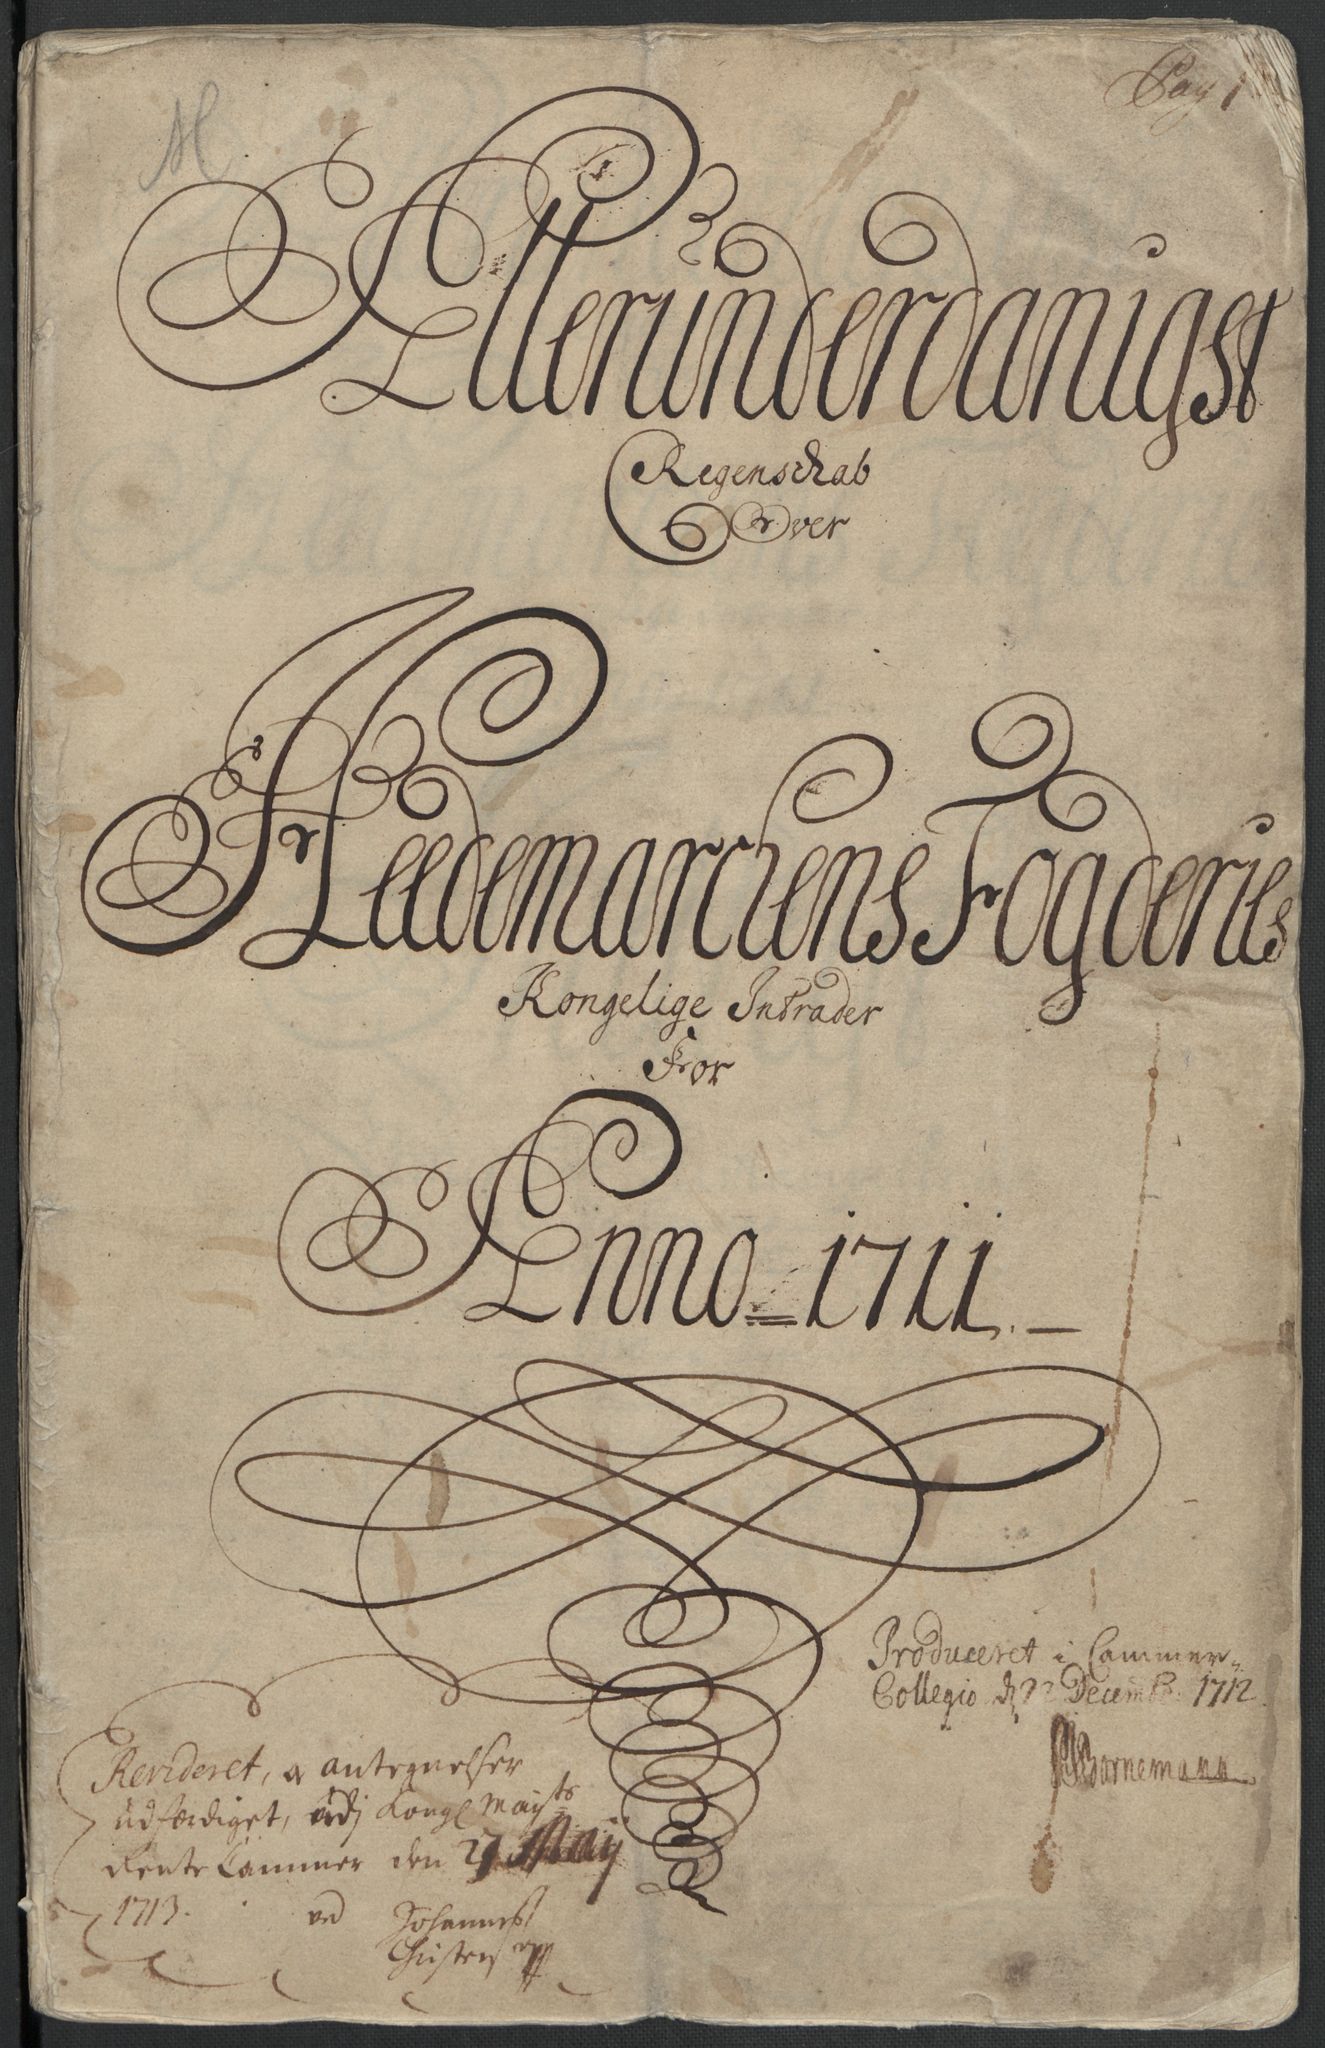 Pag 1
Allerunderdanigst
Regenschab
Over
Heedemarckens Fogderies
Kongelige Intrader
For
Anno 1711
Produceret i Cammer-
Collegio d 22 Decembr. 1712
Bornemann
Revideret, og antegnelser
udferdiget, udj Kongl Mayts
Rente Cammer den 27 Maij
1713. ved Johannes